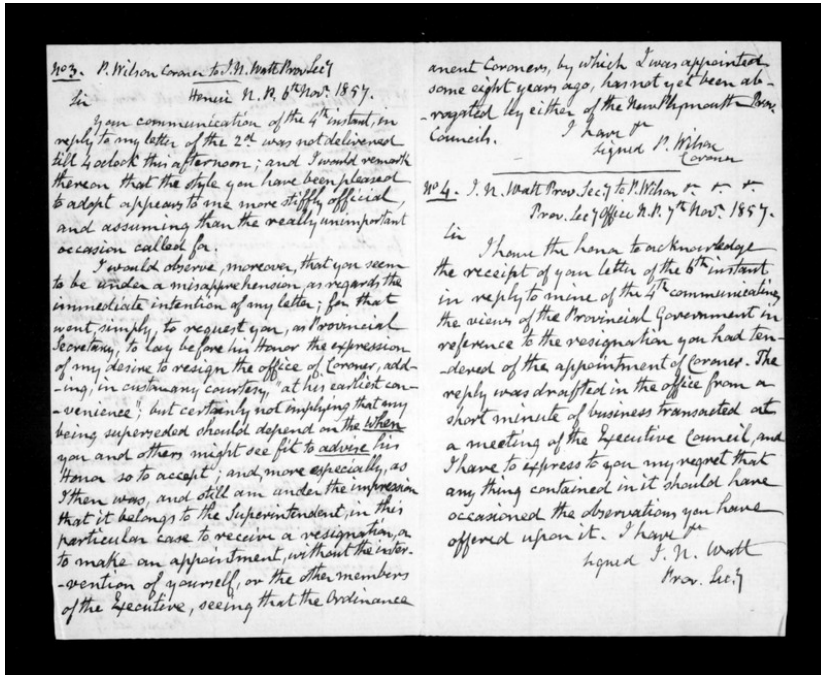 No 3. P. Wilson Coroner to I. N. Watt Prov. Secy
Sir Henui N. P. 6th Novr. 1857.
Your communication of the 4th instant, in
reply to my letter of the 2nd was not delivered
till 4 o'clock this afternoon; and I would remark
thereon that the style you have been pleased
to adopt appears to me more stiffly official,
and assuming than the really unimportant
occasion called for.
I would observe, moreover, that you seem
to be under a misapprehension, as regards the
immediate intention of my letter; for that
went, simply, to request you, as Provincial
Secretary, to lay before his Honor the expression
of my desire to resign the office of Coroner, add-
-ing, in customary courtesy, "at his earliest con-
-venience"; but certainly not implying that my
being superseded should depend on the when
you and others might see fit to advise his
Honor so to accept; and, more especially, as
I then was, and still am under the impression
that it belongs to the Superintendent, in this
particular case to receive a resignation, or
to make an appointment, without the inter-
-vention of yourself, or the other members
of the Executive, seeing that the Ordinance
anent Coroners, by which I was appointed
some eight years ago, has not yet been ab-
rogated by either of the New Plymouth Prov.
Councils. I have &c
signed P. Wilson
Coroner
No 4. I. N. Watt Prov. Secy to P. Wilson &c. &c. &c.
Prov. Secy Office N. P. 7th Novr. 1857.
Sir
I have the honor to acknowledge
the receipt of your letter of the 6th instant
in reply to mine of the 4th communicating
the views of the Provincial Government in
reference to the resignation you had ten-
-dered of the appointment of Coroner. The
reply was drafted in the office from a
short minute of business transacted at
a meeting of the Executive Council, and
I have to express to you my regret that
any thing contained in it should have
occasioned the observations you have
offered upon it. I have &c
signed I. N. Watt
Prov. Secy